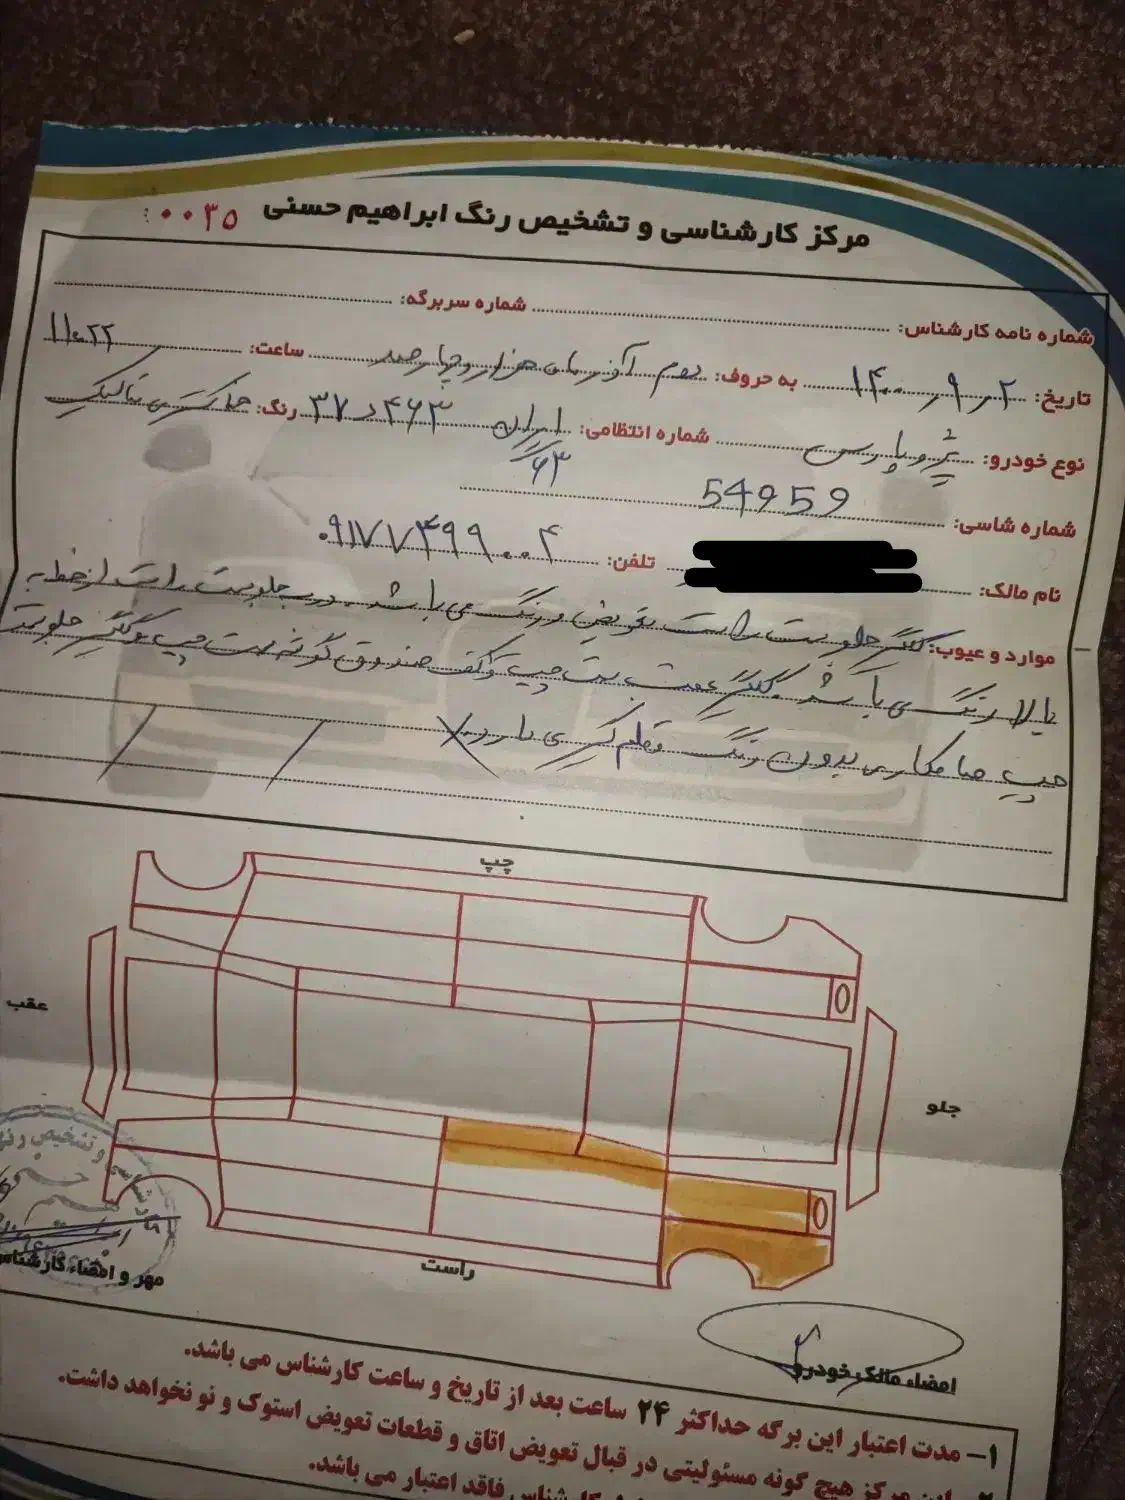 مرکز کارشناسی و تشخیص رنگ ابراهیم حسنی ۰۰۳۵
شماره نامه کارشناس: شماره سربرگه:
تاریخ: ۱۴۰۰٫۹٫۲ به حروف: دوم آذر ماه هزار و چهارصد ساعت: ۱۱:۲۲
نوع خودرو: پژو پارس شماره انتظامی: ایران ۶۳ ۴۶۳ د ۳۷ رنگ: خاکستری متالیک
شماره شاسی: 54959
نام مالک: تلفن: ۰۹۱۷۷۳۹۹۰۰۴
موارد و عیوب: گلگیر جلو سمت راست تعویض و رنگ می باشد. درب جلو سمت راست از خط به
بالا رنگ می باشد. گلگیر عقب سمت چپ و کف صندوق گوشه سمت چپ و گلگیر جلو سمت
چپ صافکاری بدون رنگ قلم گیری دارد.
چپ
عقب
جلو
راست
مهر و امضاء کارشناس
امضاء مالک خودرو
۱- مدت اعتبار این برگه حداکثر ۲۴ ساعت بعد از تاریخ و ساعت کارشناس می باشد.
۲- این مرکز هیچ گونه مسئولیتی در قبال تعویض اتاق و قطعات تعویض استوک و نو نخواهد داشت.
کارشناس فاقد اعتبار می باشد.